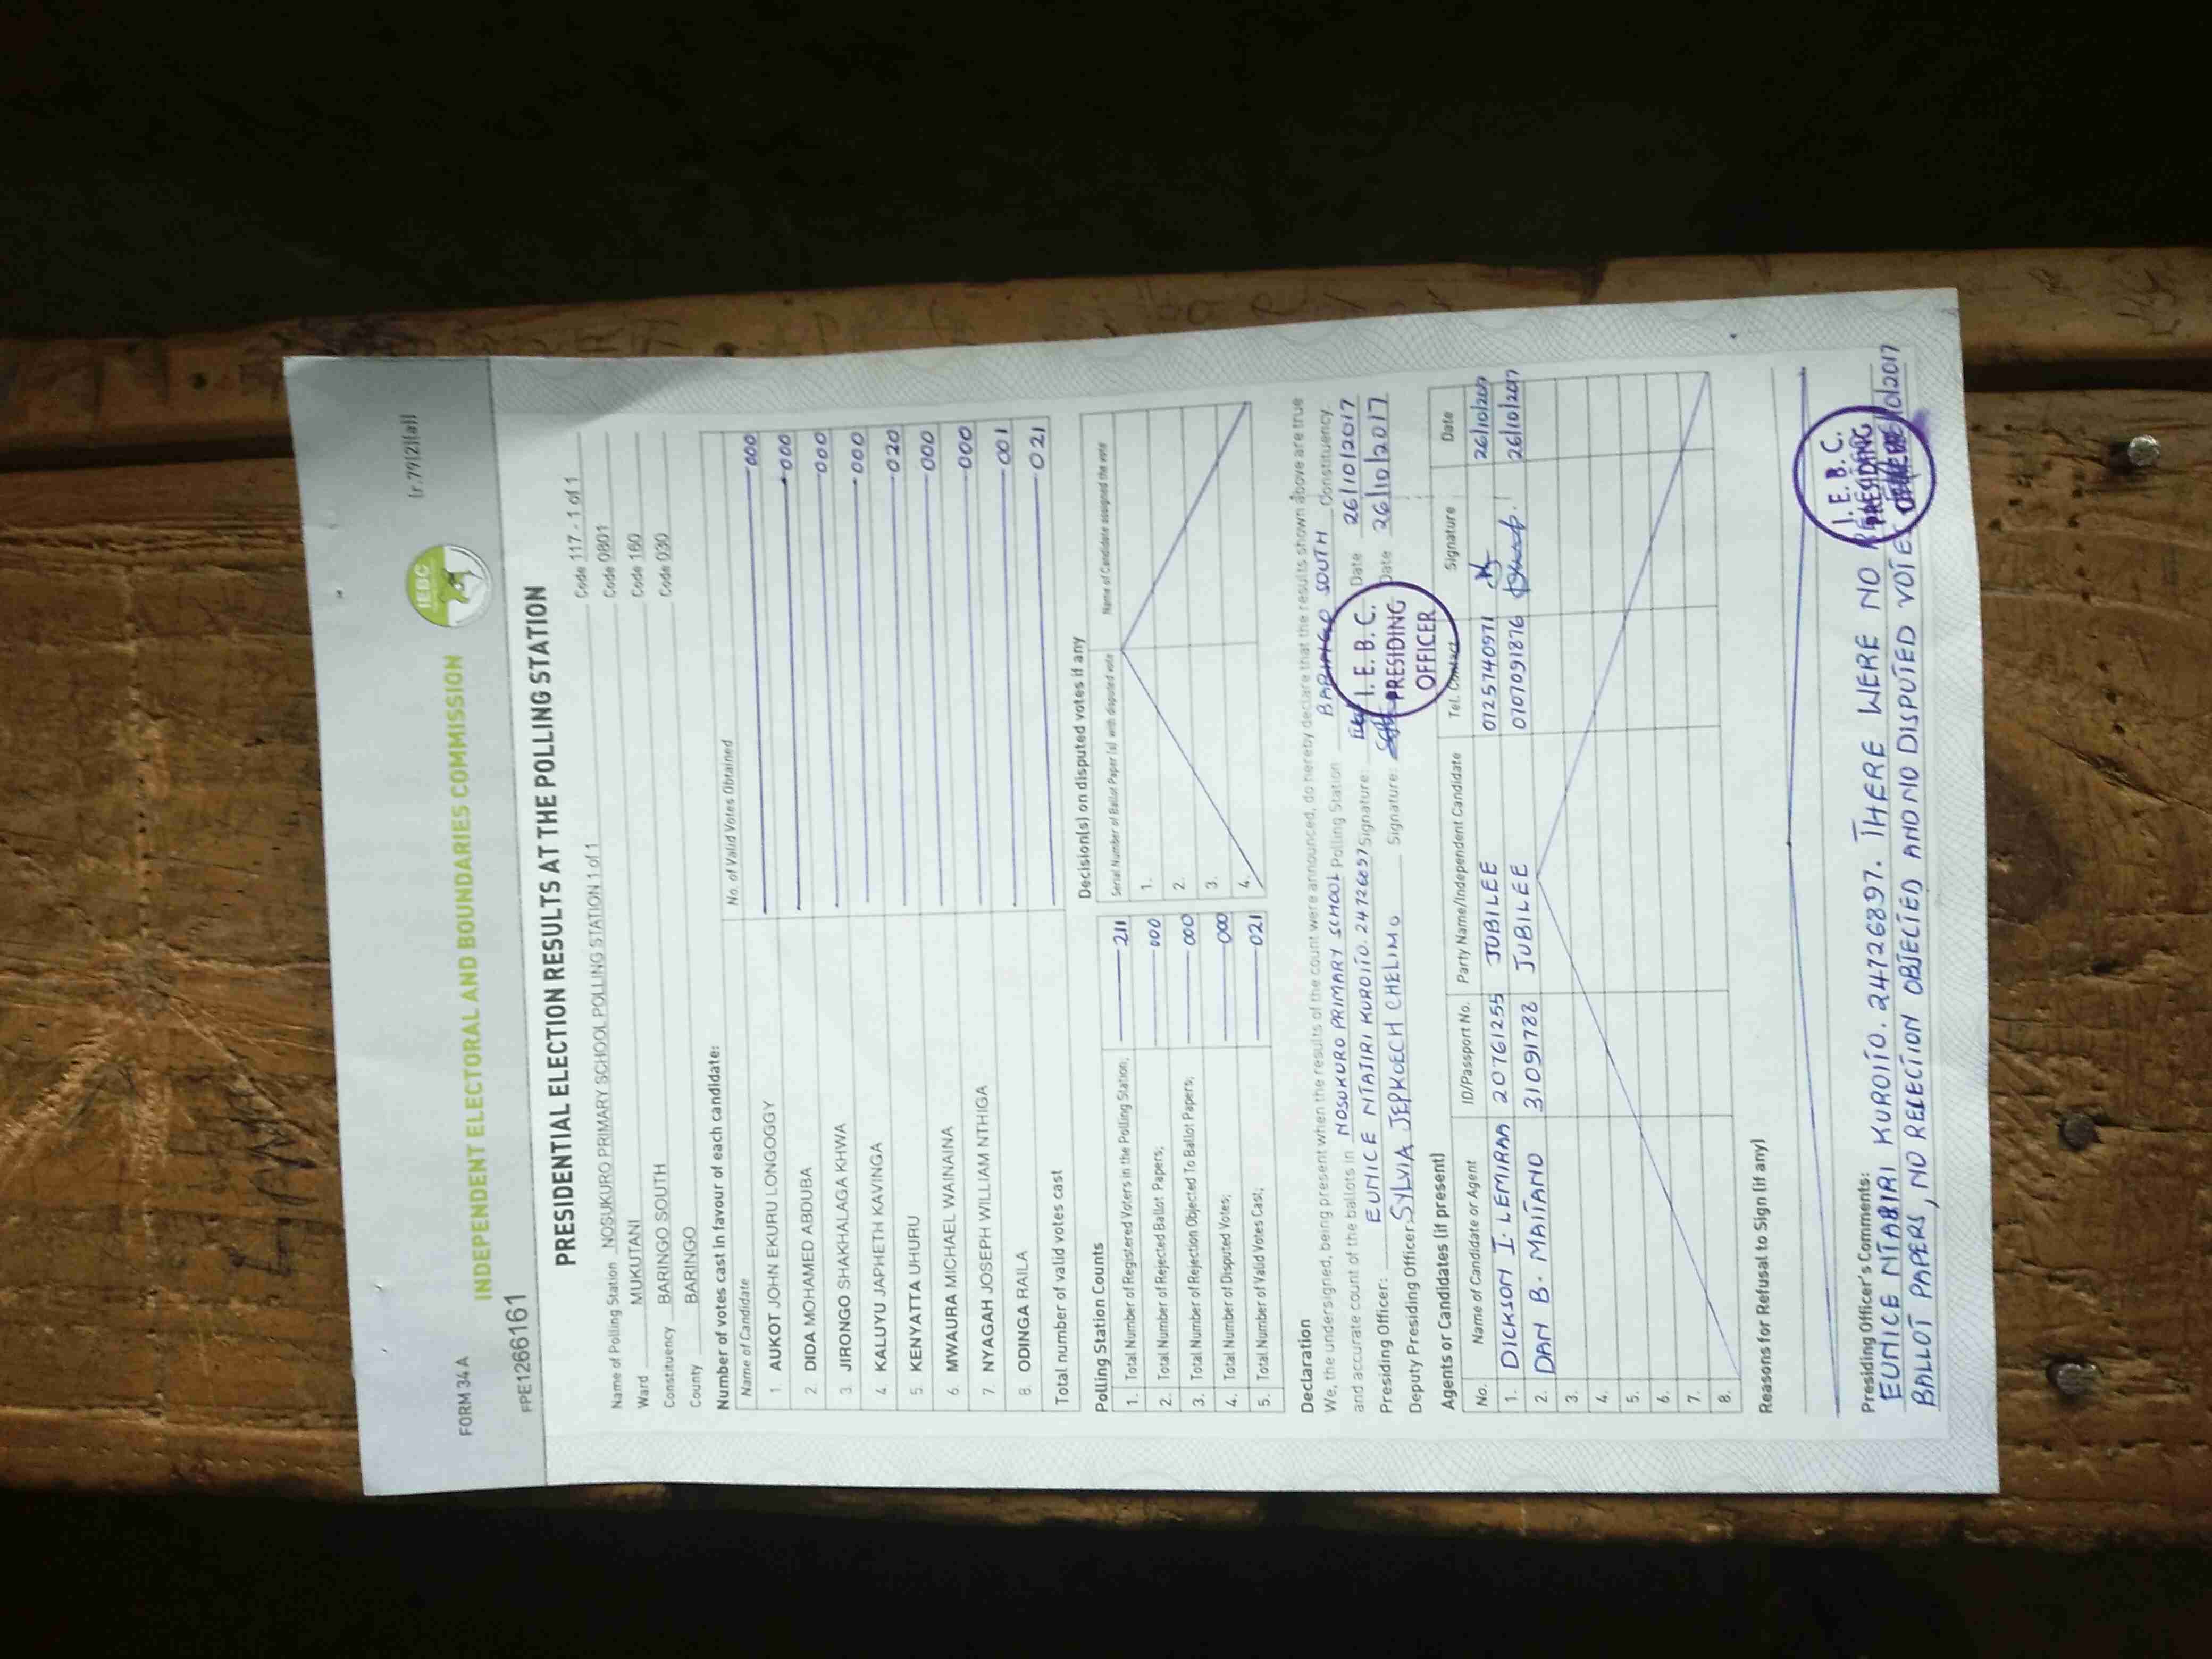 FORM 34A
(r.79(2)(a))
INDEPENDENT ELECTORAL AND BOUNDARIES COMMISSION
IEBC
FPE1266161
PRESIDENTIAL ELECTION RESULTS AT THE POLLING STATION
Name of Polling Station NOSUKURO PRIMARY SCHOOL POLLING STATION 1 of 1 Code 117 - 1 of 1
Ward MUKUTANI Code 0801
Constituency BARINGO SOUTH Code 160
County BARINGO Code 030
Number of votes cast in favour of each candidate:
Name of Candidate No. of Valid Votes Obtained
1. AUKOT JOHN EKURU LONGOGGY 000
2. DIDA MOHAMED ABDUBA 000
3. JIRONGO SHAKHALAGA KHWA 000
4. KALUYU JAPHETH KAVINGA 000
5. KENYATTA UHURU 020
6. MWAURA MICHAEL WAINAINA 000
7. NYAGAH JOSEPH WILLIAM NTHIGA 000
8. ODINGA RAILA 001
Total number of valid votes cast 021
Polling Station Counts
1. Total Number of Registered Voters in the Polling Station; 211
2. Total Number of Rejected Ballot Papers; 000
3. Total Number of Rejection Objected To Ballot Papers; 000
4. Total Number of Disputed Votes; 000
5. Total Number of Valid Votes Cast; 021
Decision(s) on disputed votes if any
Serial Number of Ballot Paper (s) with disputed vote Name of Candidate assigned the vote
1.
2.
3.
4.
Declaration
We, the undersigned, being present when the results of the count were announced, do hereby declare that the results shown above are true
and accurate count of the ballots in NOSUKURO PRIMARY SCHOOL Polling Station BARINGO SOUTH Constituency.
Presiding Officer: EUNICE NTAJIRI KUROITO. 24726897 Signature: Date 26/10/2017
Deputy Presiding Officer: SYLVIA JEPKOECH CHELIMO Signature: Date 26/10/2017
I. E. B. C.
PRESIDING
OFFICER
Agents or Candidates (if present)
No. Name of Candidate or Agent ID/Passport No. Party Name/Independent Candidate Tel. Contact Signature Date
1. DICKSON I. LEMIRAA 20761255 JUBILEE 0725740971 26/10/2017
2. DAN B. MAITANO 31091788 JUBILEE 0707091876 26/10/2017
3.
4.
5.
6.
7.
8.
Reasons for Refusal to Sign (if any)
Presiding Officer's Comments:
EUNICE NTABIRI KUROITO. 24726897. THERE WERE NO
BALLOT PAPERS, NO REJECTION OBJECTED AND NO DISPUTED VOTE
I. E. B. C.
PRESIDING
OFFICER